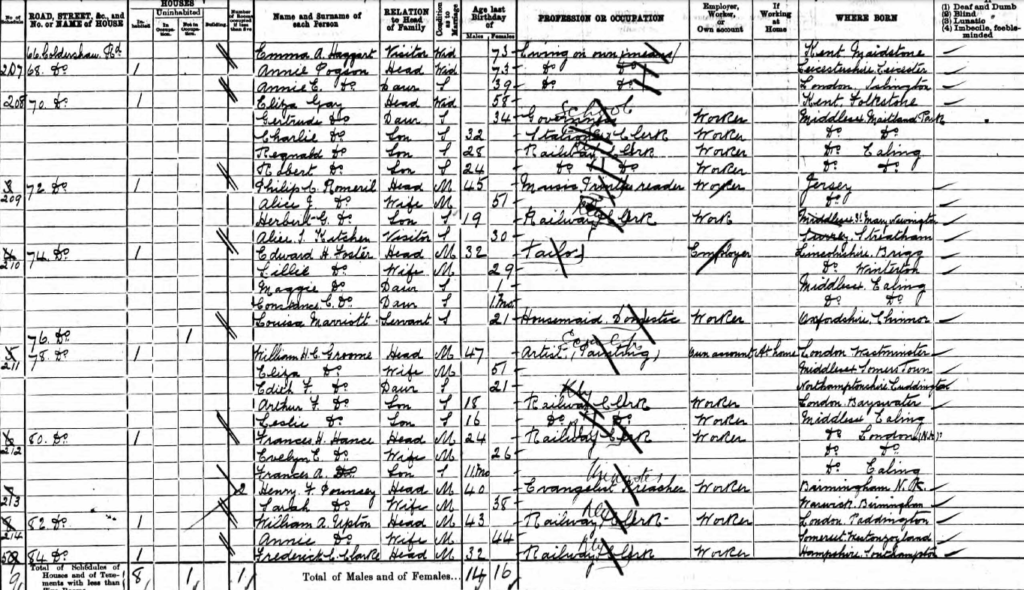 No. of ROAD, STREET, &c., and No. or NAME of HOUSE HOUSES Uninhabited Name and Surname of each Person RELATION to Head of Family Condition as to Marriage Age last Birthday of Males Females PROFESSION OR OCCUPATION Employer, Worker, or Own account If Working at Home WHERE BORN (1) Deaf and Dumb (2) Blind (3) Lunatic (4) Imbecile, feeble-minded
66 Coldershaw Rd Emma A. Haggart Visitor Wid 73 Living on own means Kent Maidstone
207 68 Do 1 Annie Pogson Head Wid 73 Do Do Leicestershire Leicester
Annie E. Do Daur S 39 Do Do London Islington
208 70 Do 1 Eliza Gay Head Wid 58 Kent Folkstone
Gertrude Do Daur S 34 Governess School Worker Middlesex Maitland Park
Charlie Do Son S 32 Clerk Worker Do Do
Reginald Do Son S 28 Railway Clerk Worker Do Ealing
Robert Do Son S 24 Do Do Worker Do Do
209 72 Do 1 Philip C. Romeril Head M 45 Music Printers reader Worker Jersey
Alice J. Do Wife M 51 Do
Herbert G. Do Son S 19 Railway Clerk Work Middlesex Newington
Alice S. Kitchen Visitor S 30 Surrey Streatham
210 74 Do 1 Edward H. Foster Head M 32 Tailor Employer Lincolnshire Brigg
Lillie Do Wife M 29 Do Winterton
Maggie Do Daur S 1 Middlesex Ealing
Constance C. Do Daur S 1 Mo Do Do
Louisa Marriott Servant S 21 Housemaid Domestic Worker Oxfordshire Chinnor
76 Do 1
211 78 Do 1 William H. C. Groome Head M 47 Artist (Painting) Own account At home London Westminster
Eliza Do Wife M 51 Middlesex Somers Town
Edith F. Do Daur S 21 Northamptonshire Cuddington
Arthur F. Do Son S 18 Railway Clerk Worker London Bayswater
Leslie Do Son S 16 Do Do Worker Middlesex Ealing
212 80 Do 1 Frances H. Hance Head M 24 Railway Clerk Worker Do London (N.K.)
Evelyn E. Do Wife M 26 Do Do
Frances A. Do Son S 11 Mo Do Ealing
213 2 Henry F. Pounsey Head M 40 Evangelist Preacher Worker Birmingham N.K.
Sarah Do Wife M 38 Warwick Birmingham
214 82 Do 1 William A. Upton Head M 43 Railway Clerk Worker London Paddington
Annie Do Wife M 44 Somerset Westonzoyland
84 Do 1 Frederick C. Clark Head M 32 Railway Clerk Worker Hampshire Southampton
9 Total of Schedules of Houses and of Tenements with less than 8 1 1 Total of Males and of Females... 14 16